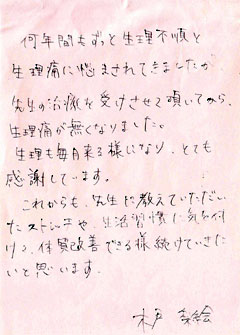 何年間もずっと生理不順と
生理痛に悩まされてきましたが
先生の治療を受けさせて頂いてから、
生理痛が無くなりました。
生理も毎月来る様になり、とても
感謝しています。
これからも、先生に教えていただい
たストレッチや、生活習慣に気を付
け、体質改善できる様続けていきた
いと思います。
木戸 絵